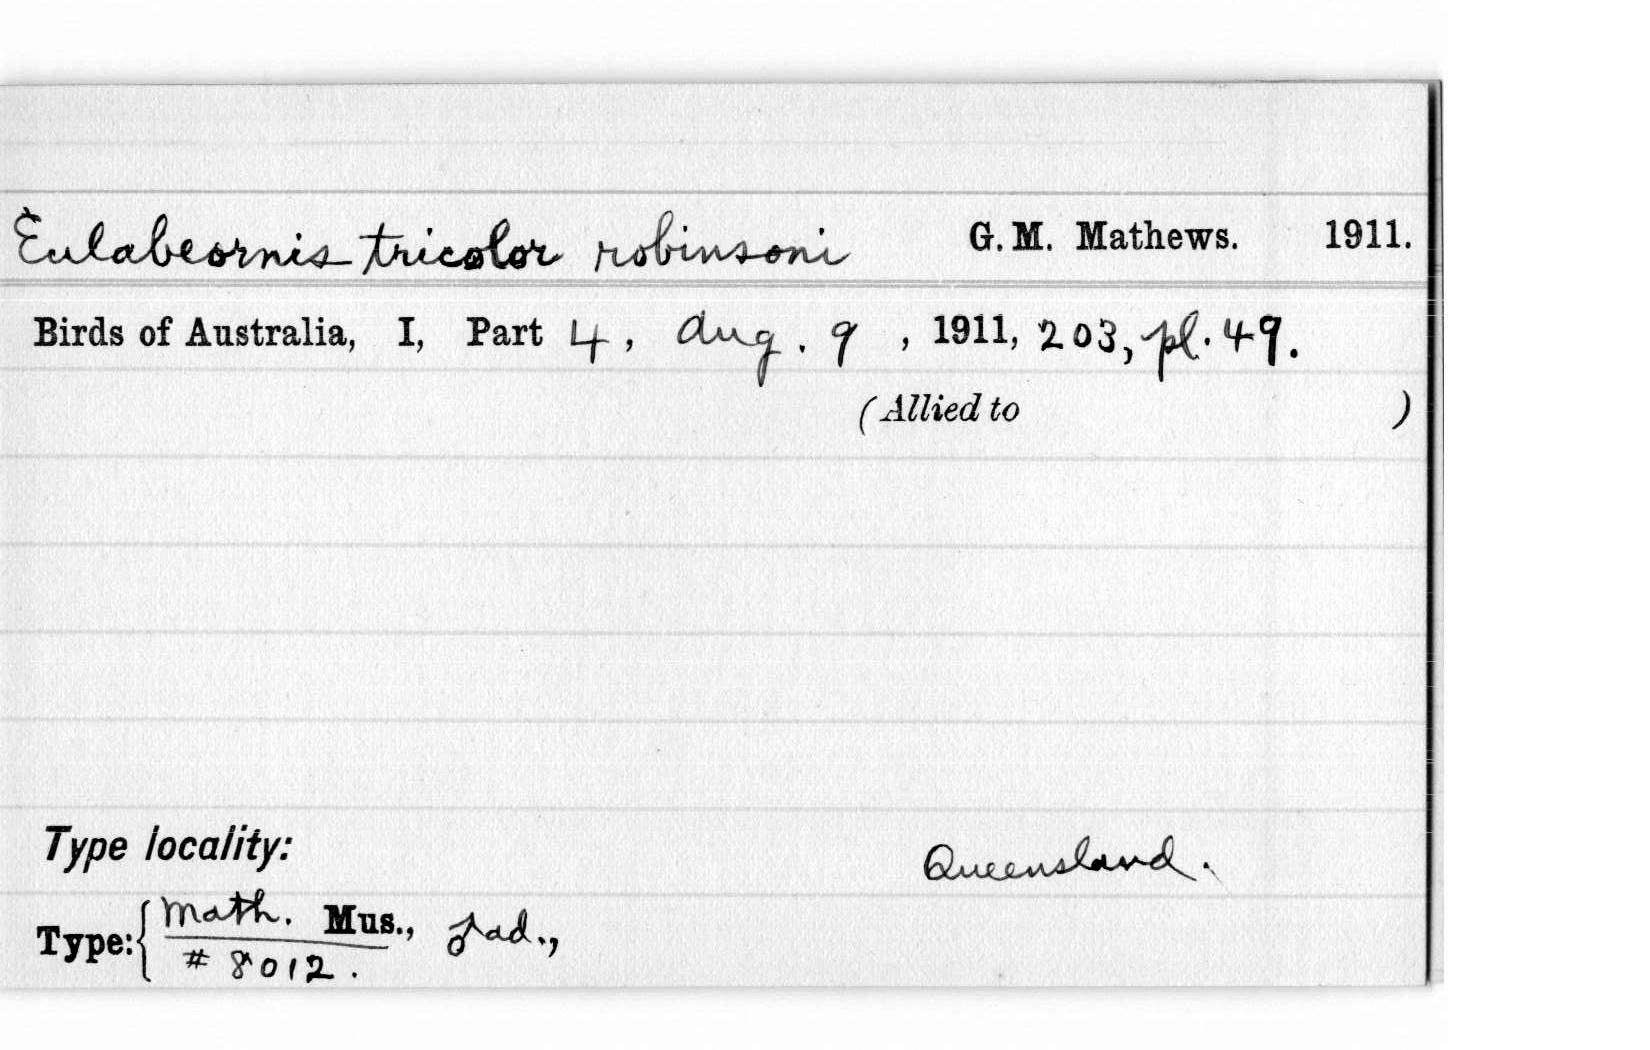 Eulabeornis tricolor robinsoni G. M. Mathews. 1911.
Birds of Australia, I, Part 4, Aug. 9, 1911, 203, pl. 49.
(Allied to )
Type locality: Queensland.
Type: { Math. Mus., ♂ ad.,
# 8012.